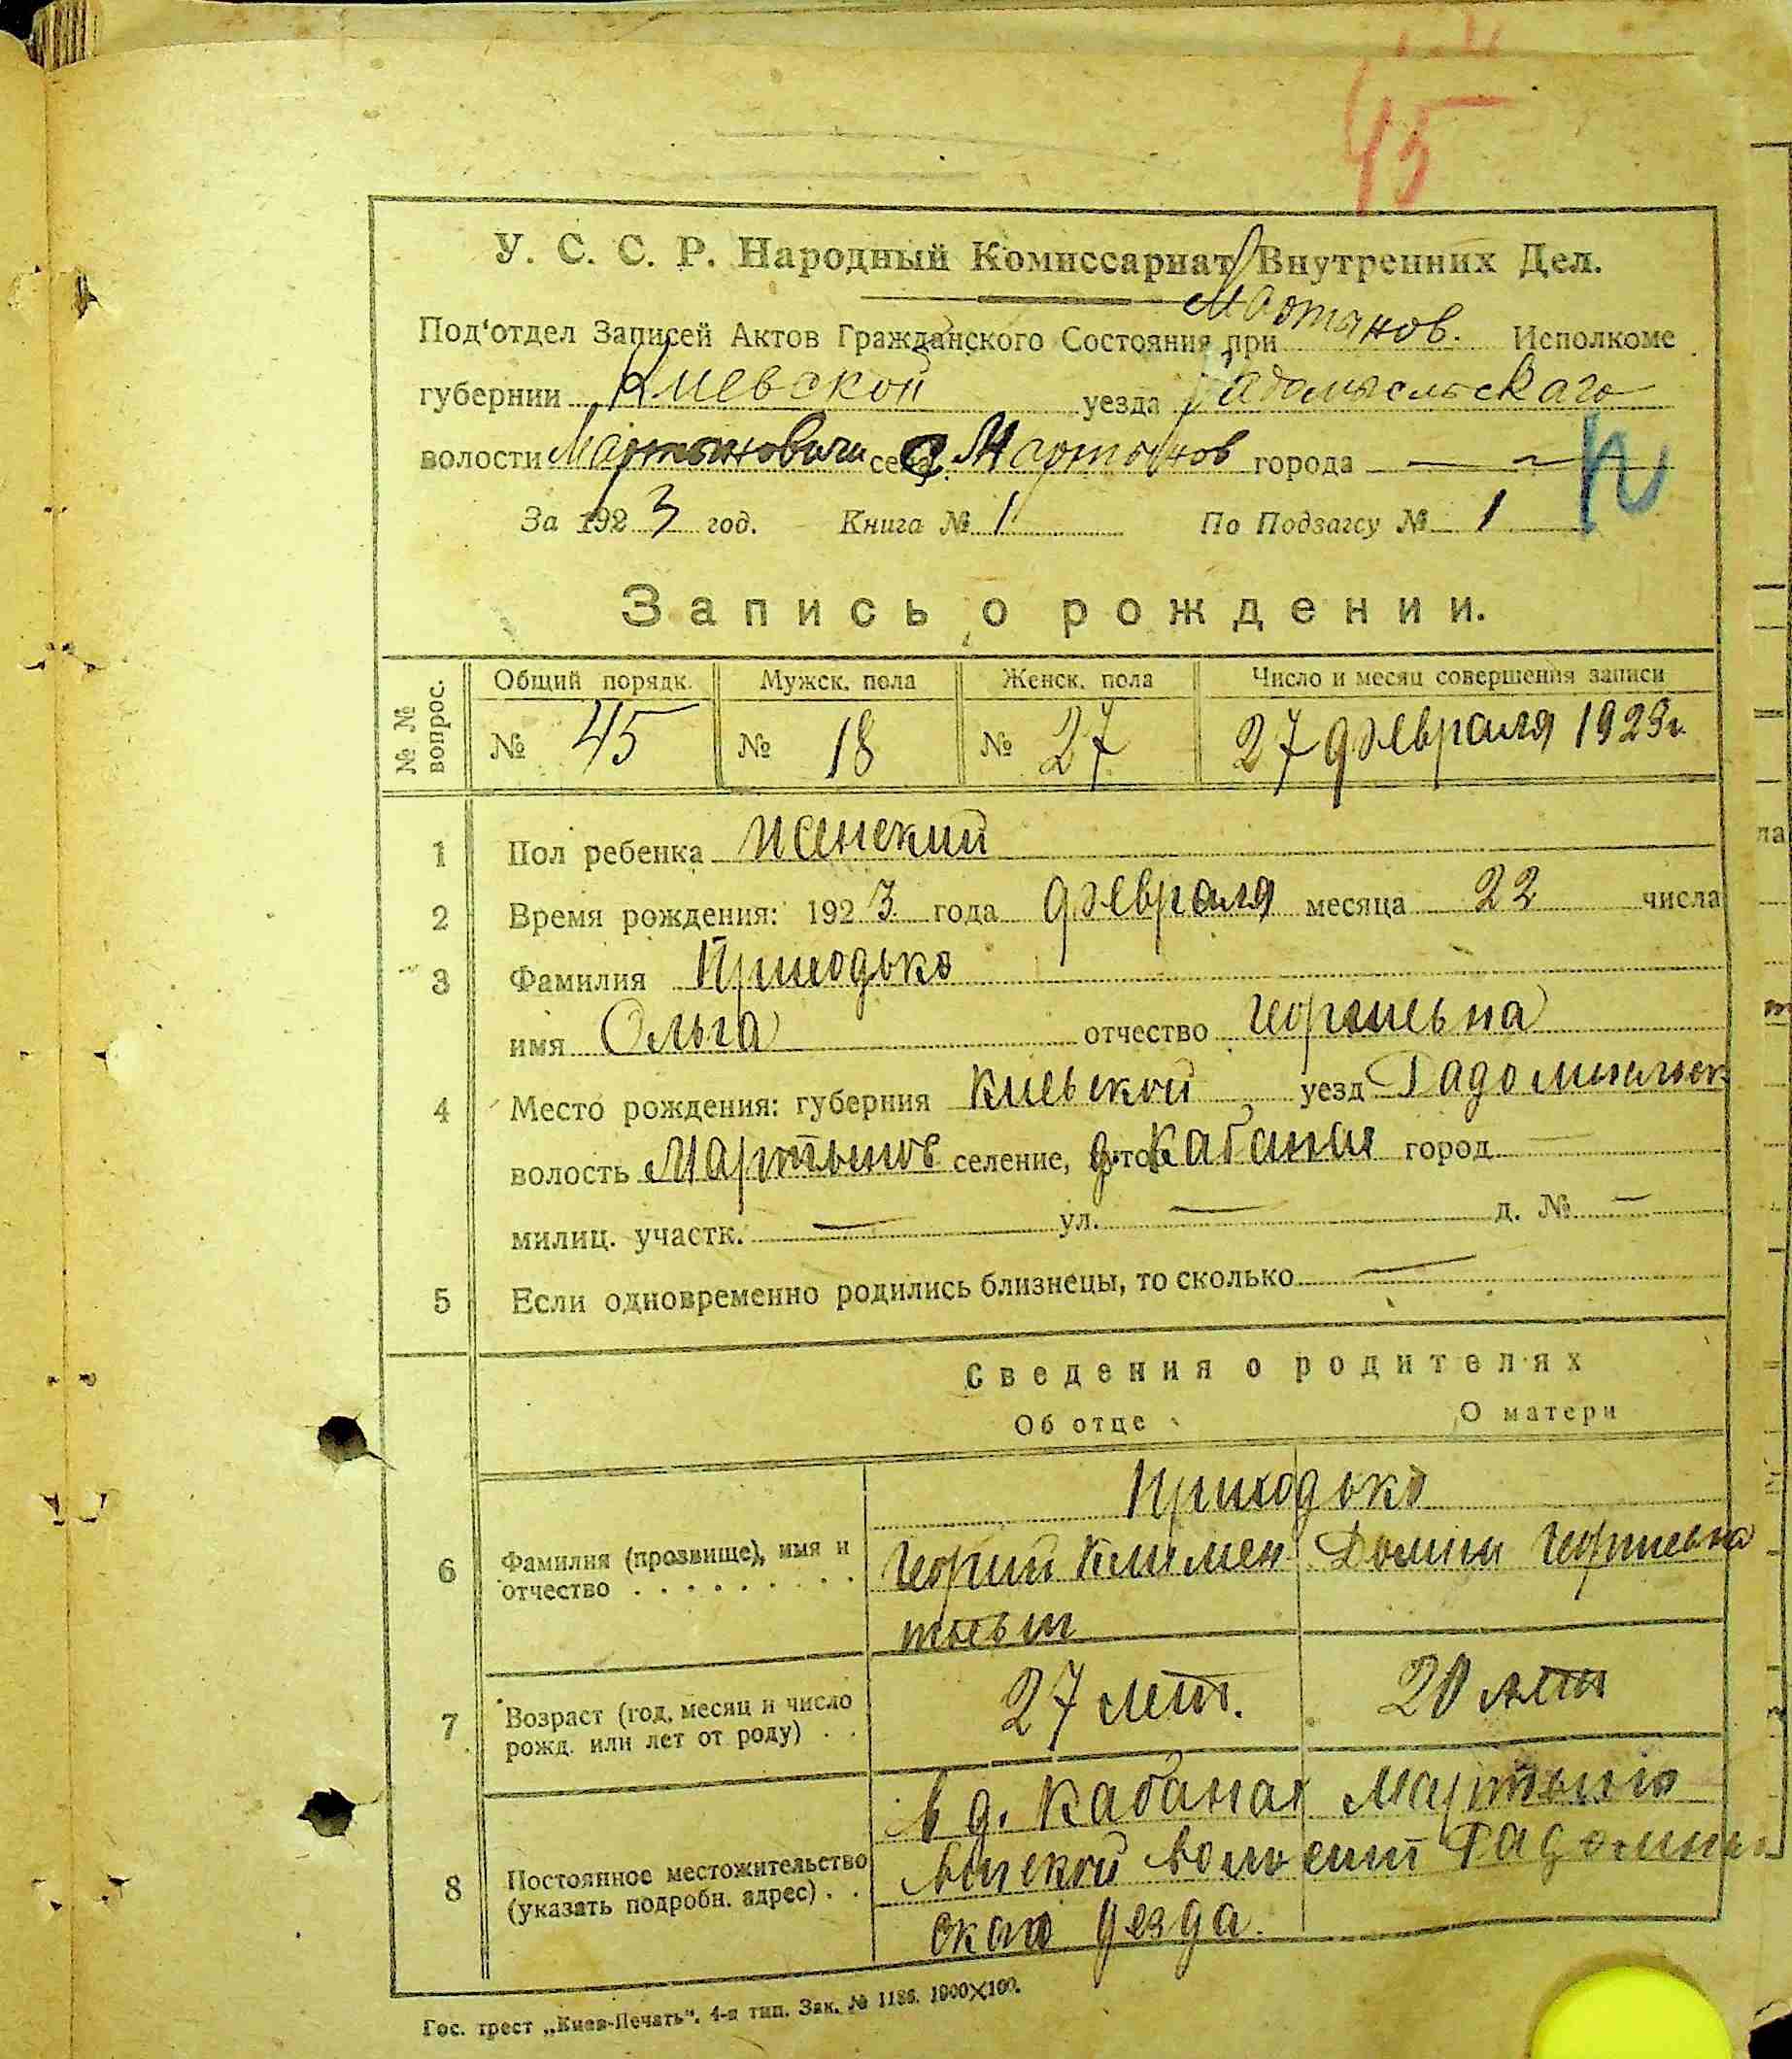 45
У. С. С. Р. Народный Комиссариат Внутренних Дел.
Под‘отдел Записей Актов Гражданского Состояния при Мартынов. Исполкоме
губернии Киевской уезда Радомысльскаго
волости Мартыновичи села С. Мартынов города — ~
За 1923 год. Книга № 1 По Подзагсу № 1
Запись о рождении.
№ № вопрос. Общий порядк. Мужск. пола Женск. пола Число и месяц совершения записи
№ 45 № 18 № 27 27 февраля 1923г.
1 Пол ребенка женский
2 Время рождения: 1923 года февраля месяца 22 числа
3 Фамилия Приходько
имя Ольга отчество Георгиевна
4 Место рождения: губерния Киевской уезд Радомысльск
волость Мартынов селение, д. Кабаная город —
милиц. участк. — ул. — д. № —
5 Если одновременно родились близнецы, то сколько —
Сведения о родителях
Об отце О матери
Приходько
6 Фамилия (прозвище), имя и Георгий Климен Георгиевна
отчество . . . . . . . . .
тьевич
7 Возраст (год, месяц и число 27 лет. 20 лет
рожд. или лет от роду) . .
в д. Кабанах Мартыно
8 Постоянное местожительство вической волости Радомысл
(указать подробн. адрес) . .
ского уезда.
Гос. трест „Киев-Печать“. 4-я тип. Зак. № 1186. 1000×100.